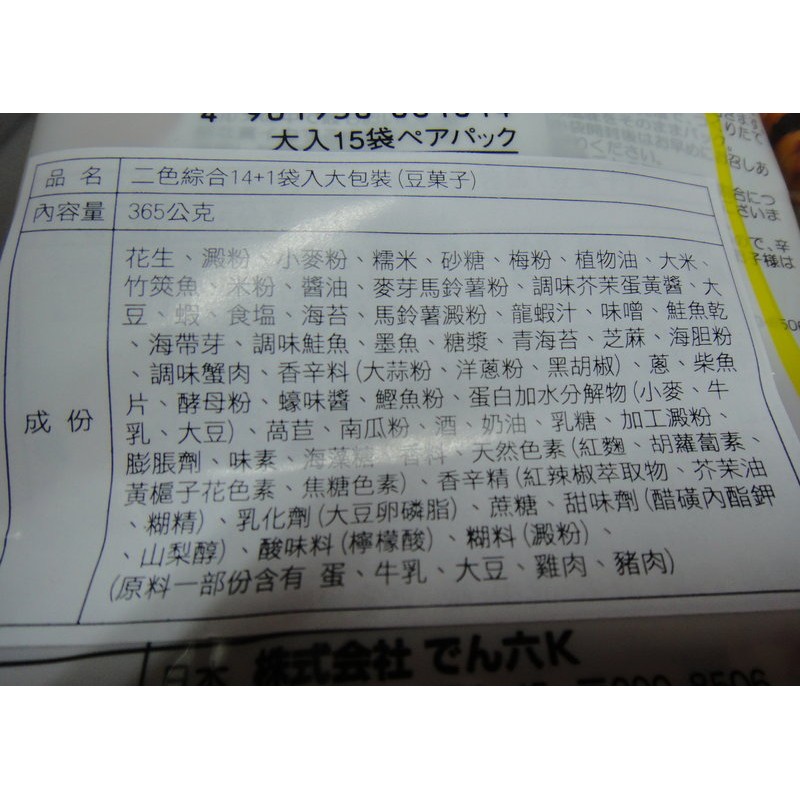 大入15袋ペアパック
品名 二色綜合14+1袋入大包裝(豆菓子)
內容量 365公克
成份
花生、澱粉、小麥粉、糯米、砂糖、梅粉、植物油、大米、
竹筴魚、米粉、醬油、麥芽馬鈴薯粉、調味芥茉蛋黃醬、大
豆、蝦、食塩、海苔、馬鈴薯澱粉、龍蝦汁、味噌、鮭魚乾
、海帶芽、調味鮭魚、墨魚、糖漿、青海苔、芝麻、海胆粉
、調味蟹肉、香辛料(大蒜粉、洋蔥粉、黑胡椒)、蔥、柴魚
片、酵母粉、蠔味醬、鰹魚粉、蛋白加水分解物(小麥、牛
乳、大豆)、萵苣、南瓜粉、酒、奶油、乳糖、加工澱粉、
膨脹劑、味素、海藻糖、香料、天然色素(紅麴、胡蘿蔔素、
黃槴子花色素、焦糖色素)、香辛精(紅辣椒萃取物、芥茉油
、糊精)、乳化劑(大豆卵磷脂)、蔗糖、甜味劑(醋磺內酯鉀
、山梨醇)、酸味料(檸檬酸)、糊料(澱粉)、
(原料一部份含有 蛋、牛乳、大豆、雞肉、豬肉)
株式会社 でん六K